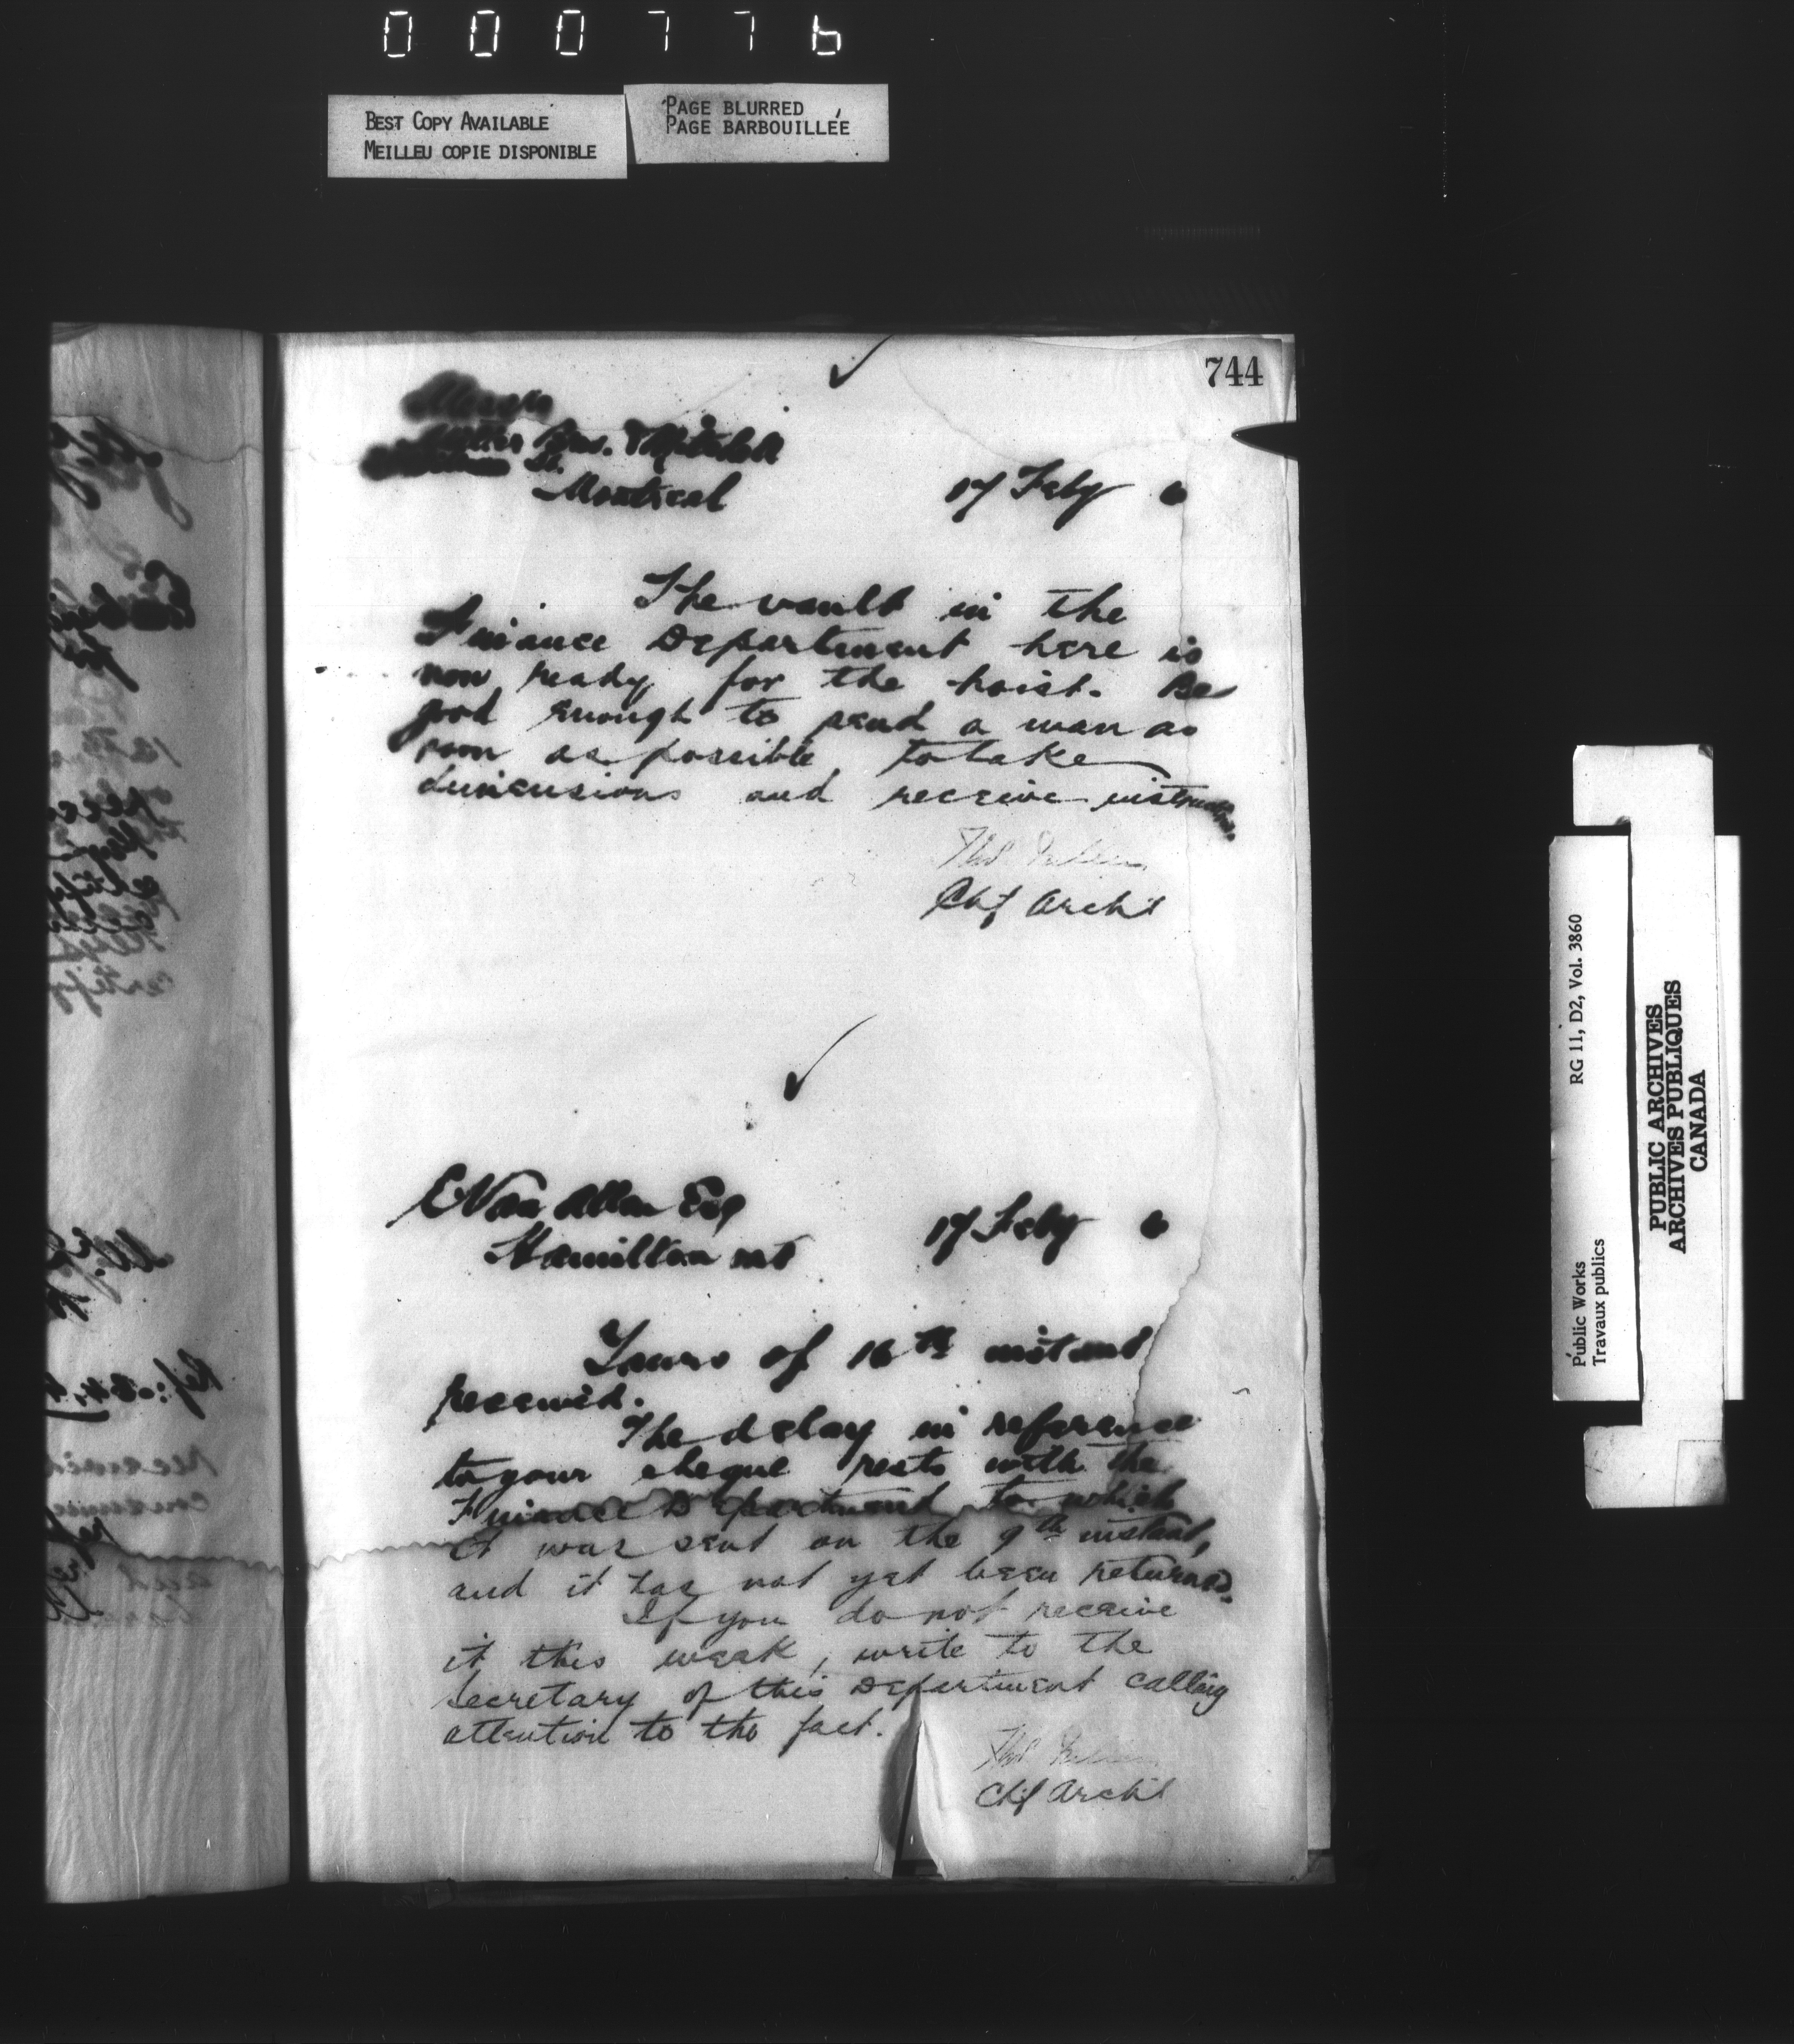 000776
BEST COPY AVAILABLE
MEILLEU COPIE DISPONIBLE
PAGE BLURRED
PAGE BARBOUILLÉE
744
Messrs
Miller Bros. & Mitchell
St.
Montreal
17 Feby 6
The vault in the
Finance Department here is
now ready for the hoist. Be
good enough to send a man as
soon as possible to take
dimensions and receive instructions.
Thos Fuller
Chf Archt
E Van Allan Esq
Hamilton Ont
17 Feby 6
Yours of 16th instant
received.
The delay in reference
to your cheque rests with the
Finance Department to which
it was sent on the 9th instant,
and it has not yet been returned.
If you do not receive
it this week, write to the
Secretary of this Department calling
attention to the fact.
Thos Fuller
Chf Archt
Public Works
Travaux publics
RG 11, D2, Vol. 3860
PUBLIC ARCHIVES
ARCHIVES PUBLIQUES
CANADA